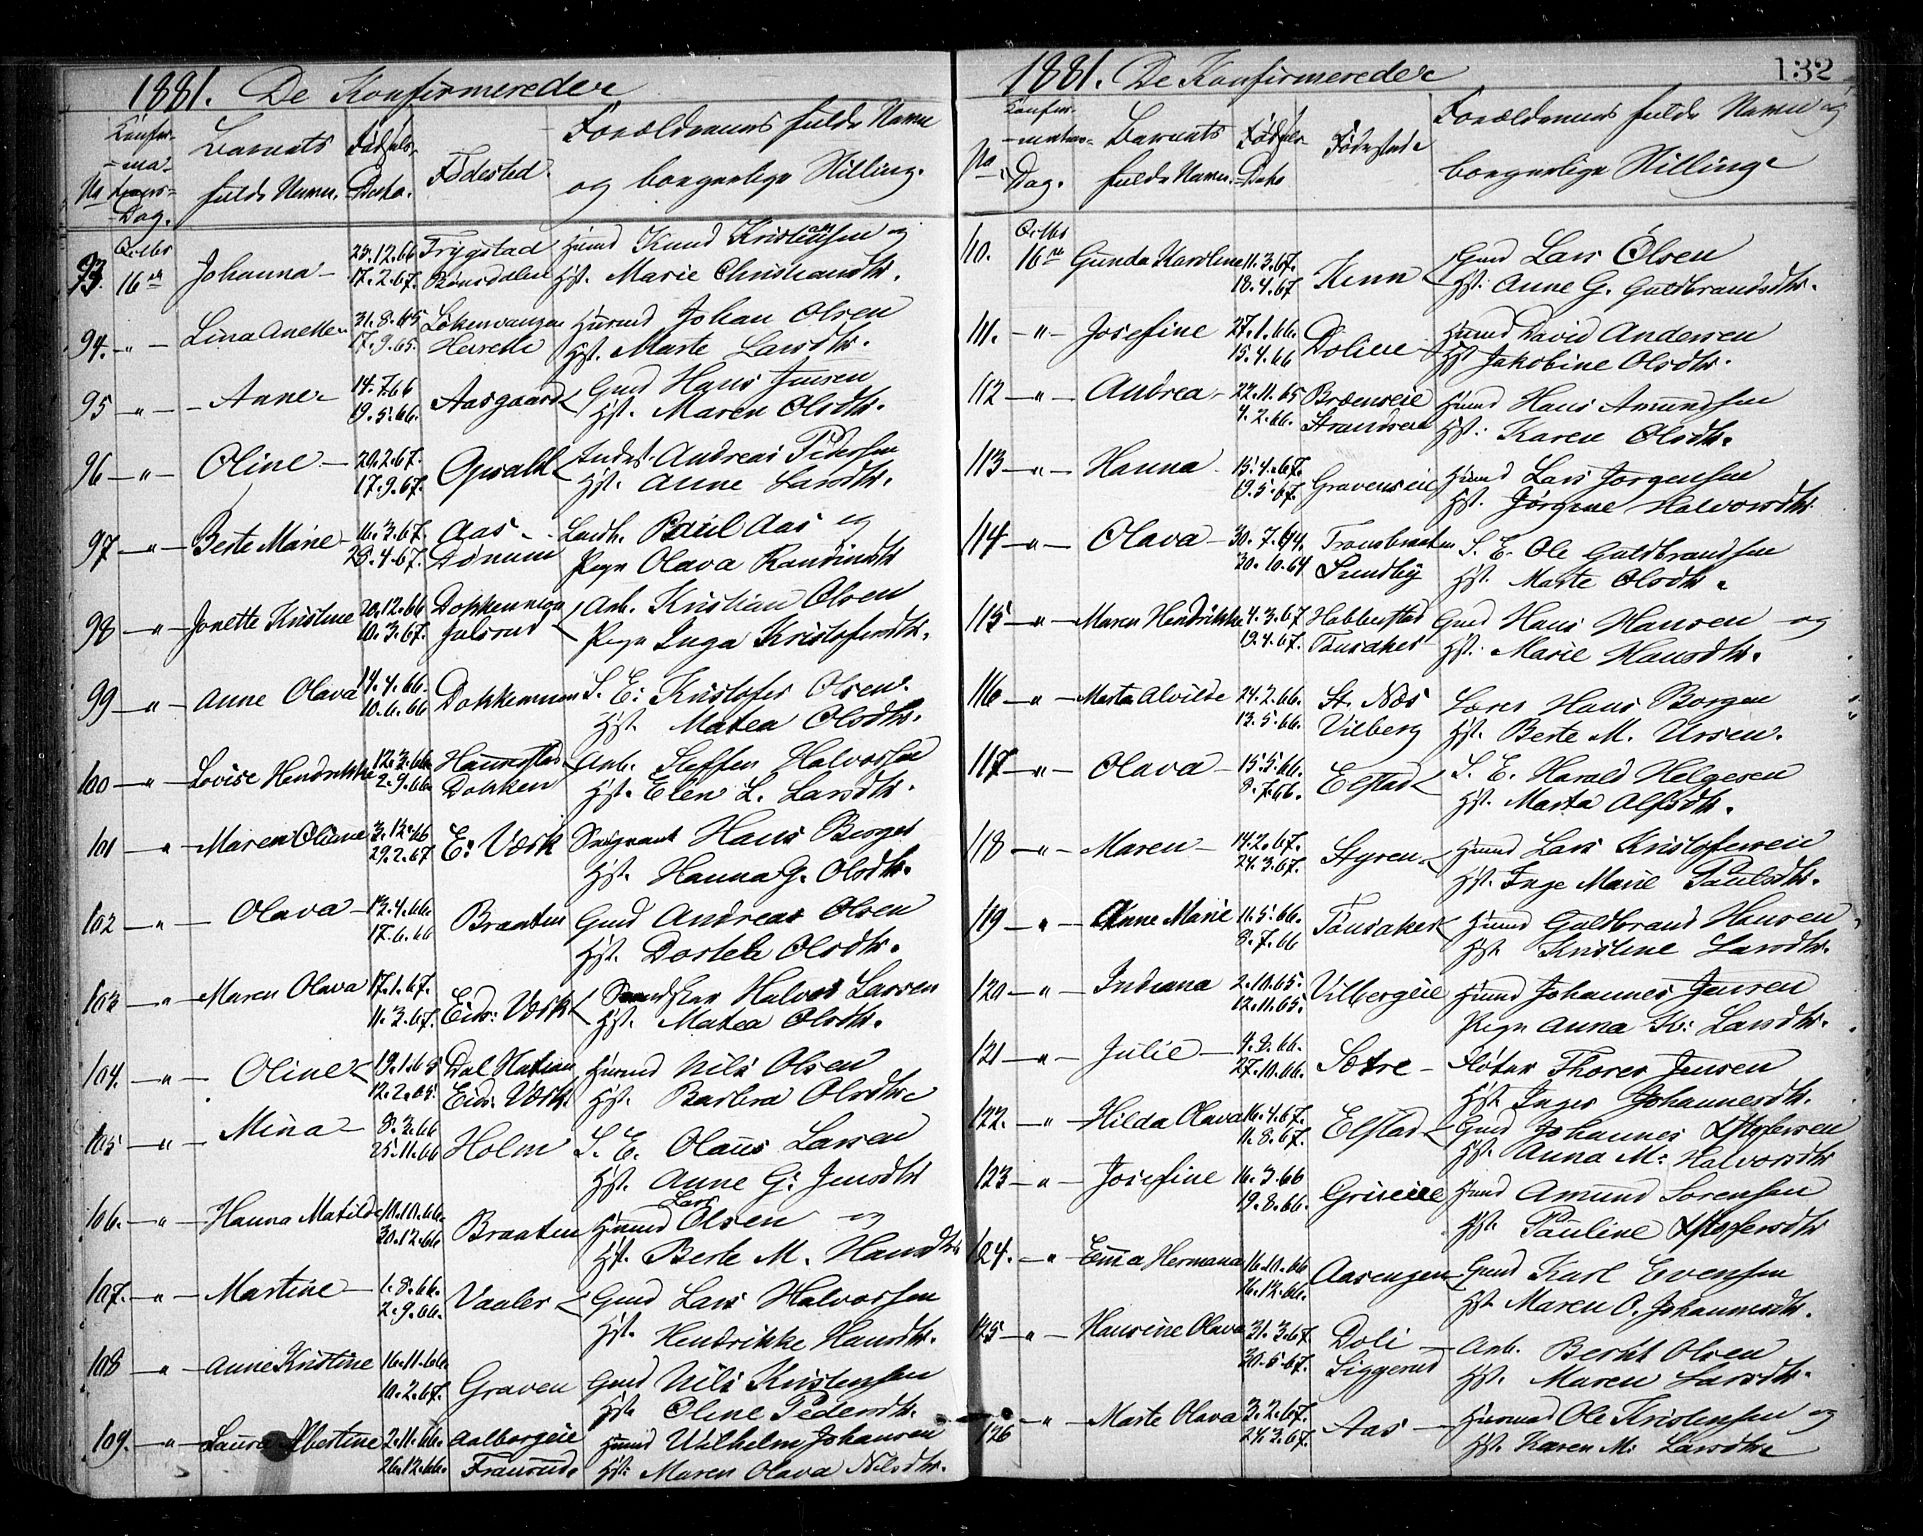 1881. De Konfirmerede
No Konfirmations-Dag. Barnets fulde Navn. Fødsels-Dato. Fødested. Forældrenes fulde Navn og borgerlige Stilling.
93. Octbr 16de Johanna 23.12.66 Frygstad Husmd Knud Kristiansen og
17.2.67. Hst. Marie Christiansdtr.
94. " Lina Anette 31.8.65 Løkenvangen Husmd Johan Olsen
17.9.65. Hst. Marte Larsdtr.
95 " Anne 14.7.66 Aasgaard Gmd Hans Jensen
19.5.66. Hst. Maren Olsdtr.
96 " Oline 20.2.67. Opsahl Inds. Andreas Pedersen
17.9.67. Hst. Anne Larsdtr.
97 " Berte Marie 16.3.67. Aas Landh. Paul Aas og
28.4.67. Dønnum Pige Olava
98 " Jonette Kristine 20.12.66 Arb. Kristian Olsen
10.3.67. Jalsrud Pige Inga Kristofersdtr.
99 " Anne Olava 14.4.66. Dokkemoen S. E. Kristofer Olsen.
10.6.66 Hst. Matea Olsdtr.
100 " Lovise Hendrikke 12.3.66. Arb. Steffen Halvorsen
2.9.66. Dokken Hst. Elen L. Larsdtr.
101 " Maren Oline 3.12.66 E: Værk Sergeant Hans Borger
29.2.67 Hst. Hanna G. Olsdtr.
102 " Olava 13.4.66. Braaten Gmd Andreas Olsen
17.6.66 Hst. Dortea Olsdtr.
103 " Maren Olava 17.1.67. Eids: Værk Halvor Larsen
11.3.67. Hst. Matea Olsdtr.
104. " Oline 19.1.65 Dal Station Husmd Nils Olsen
12.2.65. Eids: Værk. Hst. Barbra Olsdtr
105 " Mina 8.3.66 Holm S. E. Olaus Larsen
25.11.66 Hst. Anne G: Jensdtr
106. " Hanna Matilde 10.10.66. Braaten Husmd Lars Olsen og
30.12.66 Hst. Berte M. Hansdtr
107. " Martine 1.8.66. Vaaler Gmd Lars Halvorsen
2.9.66. Hst. Hendrikke Hansdtr.
108 " Anne Kristine 16.11.66. Graven Gmd Nils Kristensen
10.2.67. Hst. Oline Pedersdtr.
109. " Laura Albertine 2.11.66. Aalborgeie Husmd Wilhelm Johansen
26.12.66. Hst: Maren Olava Nilsdtr.
1881. De Konfirmerede 132
No Konfirmations-Dag. Barnets fulde Navn. Fødsels-Dato Fødested Forældrenes fulde Navn og borgerlige Stilling
110. Octbr 16de Gunda Karoline 11.3.67. Kinn Gmd Lars Olsen
18.4.67 Hst: Anne G. Guldbrandsdtr.
111. " Josefine 27.1.66. Dolieie Husmd David Andersen
15.4.66 Hst Jakobine Olsdtr.
112 " Andrea 22.11.65 Brænseie Husmd Hans Amundsen
4.2.66. Hst: Karen Olsdtr.
113 " Hanna 15.4.67. Gravenseie Husmd Lars Jørgensen
19.5.67. Hst. Jørgine Halvorsdtr
114 " Olava 30.7.64. S. E. Ole Guldbrandsen
30.10.64 Sundby Hst. Marte Olsdtr.
115 " Maren Hendrikke 4.3.67 Habberstad Gmd Hans Hansen og
19.4.67. Tønsaker Hst: Marie Hansdtr.
116 " Marta Alvilde 24.2.66. St. Næs Lærer Hans Borgen
13.5.66. Vilberg Hst. Berte M. Ursen.
117 " Olava 15.5.66. Elstad S. E. Harald Helgesen
8.7.66. Hst. Marta Alfsdtr.
118 " Maren 14.2.67. Styren Husmd Lars Kristofersen
24.3.67. Hst. Inge Marie Paulsdtr.
119 " Anne Marie 11.5.66. Tønsaker Husmd Guldbrand Hansen
8.7.66 Hst. Kristine Larsdtr.
120 " Indiana 2.10.65. Vilbergeie Husmd Johannes Jensen
12.11.65. Pige Anna K: Larsdtr.
121 " Julie 9.8.66. Sætre Fløter Thorer Jensen
27.10.66. Hst. Inger Johannesdtr.
122. " Hilda Olava 16.4.67. Elstad Gmd Johannes Xstofersen
11.8.67. Hst. Anna M: Halvorsdtr
123 " Josefine 16.3.66 Griseie Husmd Amund Sørensen
19.8.66. Hst. Pauline Xstofersdtr
124. " Emma Hermana 16.10.66 Aasengen Gmd Karl Evensen
16.12.66. Hst. Maren O. Johannesdtr.
125 " Hansine Olava 31.3.67. Doli Arb. Bernt Olsen
30.5.67. Siggerud Hst. Maren Larsdtr.
126 " Marte Olava 3.2.67. Aas Husmd Ole Kristensen og
24.3.67. Hst. Karen M: Larsdtr